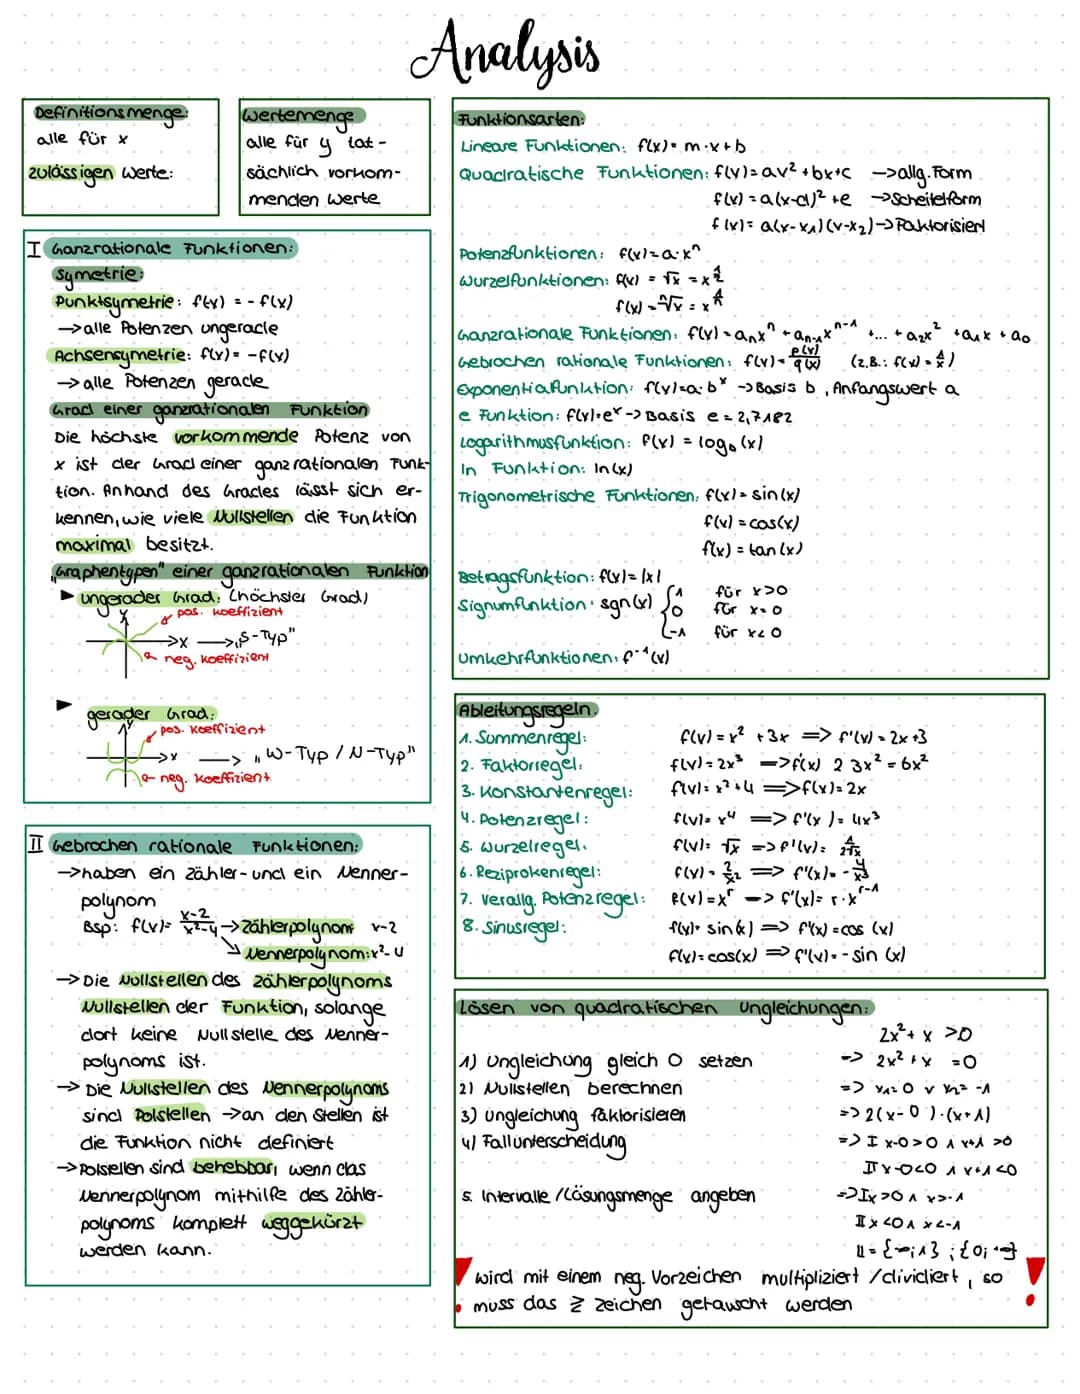 Analysis
Definitionsmenge:
alle für x
zulässigen Werte:
Wertemenge
alle für y tat-
sächlich vorkom-
menden Werte
I Ganzrationale Funktionen:
Symetrie:
Punktsymetrie: f(x) = - f(x)
→ alle Potenzen ungerade
Achsensymetrie: f(x) = -f(x)
→ alle Potenzen gerade
Grad einer ganzrationalen Funktion
Die höchste vorkommende Potenz von
x ist der Grad einer ganzrationalen Funk-
tion. Anhand des Grades lässt sich er-
kennen, wie viele Nullstellen die Funktion
maximal besitzt.
„Graphentypen" einer ganzrationalen Funktion
▶ ungerader Grad: (höchster Grad)
y pos. Koeffizient
x → „S-Typ"
neg. Koeffizient
▶ gerader Grad:
y pos. Koeffizient
x → „W-Typ / N-Typ"
neg. Koeffizient
II Gebrochen rationale Funktionen:
→ haben ein Zähler- und ein Nenner-
polynom
Bsp: f(x) = x-2 / x²-4 → Zählerpolynom x-2
↘ Nennerpolynom: x²-4
→ Die Nullstellen des Zählerpolynoms
Nullstellen der Funktion, solange
dort keine Nullstelle des Nenner-
polynoms ist.
→ Die Nullstellen des Nennerpolynoms
sind Polstellen → an den Stellen ist
die Funktion nicht definiert
→ Polstellen sind behebbar, wenn das
Nennerpolynom mithilfe des Zähler-
polynoms komplett weggekürzt
werden kann.
Funktionsarten:
Lineare Funktionen: f(x) = m·x+b
Quadratische Funktionen: f(x) = ax²+bx+c → allg. Form
f(x) = a(x-d)²+e → Scheitelform
f(x) = a(x-x₁)(x-x₂) → Faktorisiert
Potenzfunktionen: f(x) = a·xⁿ
Wurzelfunktionen: f(x) = √x = x^1/2
f(x) = ⁿ√x = x^1/n
Ganzrationale Funktionen: f(x) = aₙxⁿ + aₙ₋₁xⁿ⁻¹ +... + a₂x² + a₁x + a₀
Gebrochen rationale Funktionen: f(x) = p(x)/q(x) (z.B.: f(x) = 1/x)
Exponentialfunktion: f(x) = a·bˣ → Basis b, Anfangswert a
e Funktion: f(x) = eˣ → Basis e = 2,7182
Logarithmusfunktion: f(x) = log_b(x)
ln Funktion: ln(x)
Trigonometrische Funktionen: f(x) = sin(x)
f(x) = cos(x)
f(x) = tan(x)
Betragsfunktion: f(x) = |x|
Signumfunktion: sgn(x) { 1 für x>0
0 für x=0
-1 für x<0
Umkehrfunktionen: f⁻¹(x)
Ableitungsregeln:
1. Summenregel: f(x) = x² + 3x => f'(x) = 2x+3
2. Faktorregel: f(x) = 2x³ => f'(x) 2 3x² = 6x²
3. Konstantenregel: f(x) = x²+4 => f(x) = 2x
4. Potenzregel: f(x) = x⁴ => f'(x) = 4x³
5. Wurzelregel: f(x) = √x => f'(x) = 1/2√x
6. Reziprokenregel: f(x) = 2/x² => f'(x) = -4/x³
7. Verallg. Potenzregel: f(x) = xʳ => f'(x) = r·xʳ⁻¹
8. Sinusregel: f(x) = sin(x) => f'(x) = cos(x)
f(x) = cos(x) => f'(x) = -sin(x)
Lösen von quadratischen Ungleichungen:
2x² + x >0
1) Ungleichung gleich 0 setzen => 2x² + x =0
2) Nullstellen berechnen => x₁=0 ∨ x₂= -1
3) Ungleichung faktorisieren => 2(x-0)·(x+1)
4) Fallunterscheidung => I x-0>0 ∧ x+1>0
II x-0<0 ∧ x+1<0
5. Intervalle / Lösungsmenge angeben => I x>0 ∧ x>-1
II x<0 ∧ x<-1
𝕃 = {-∞;1} ; {0; +∞}
! wird mit einem neg. Vorzeichen multipliziert / dividiert, so !
muss das ≥ zeichen getauscht werden